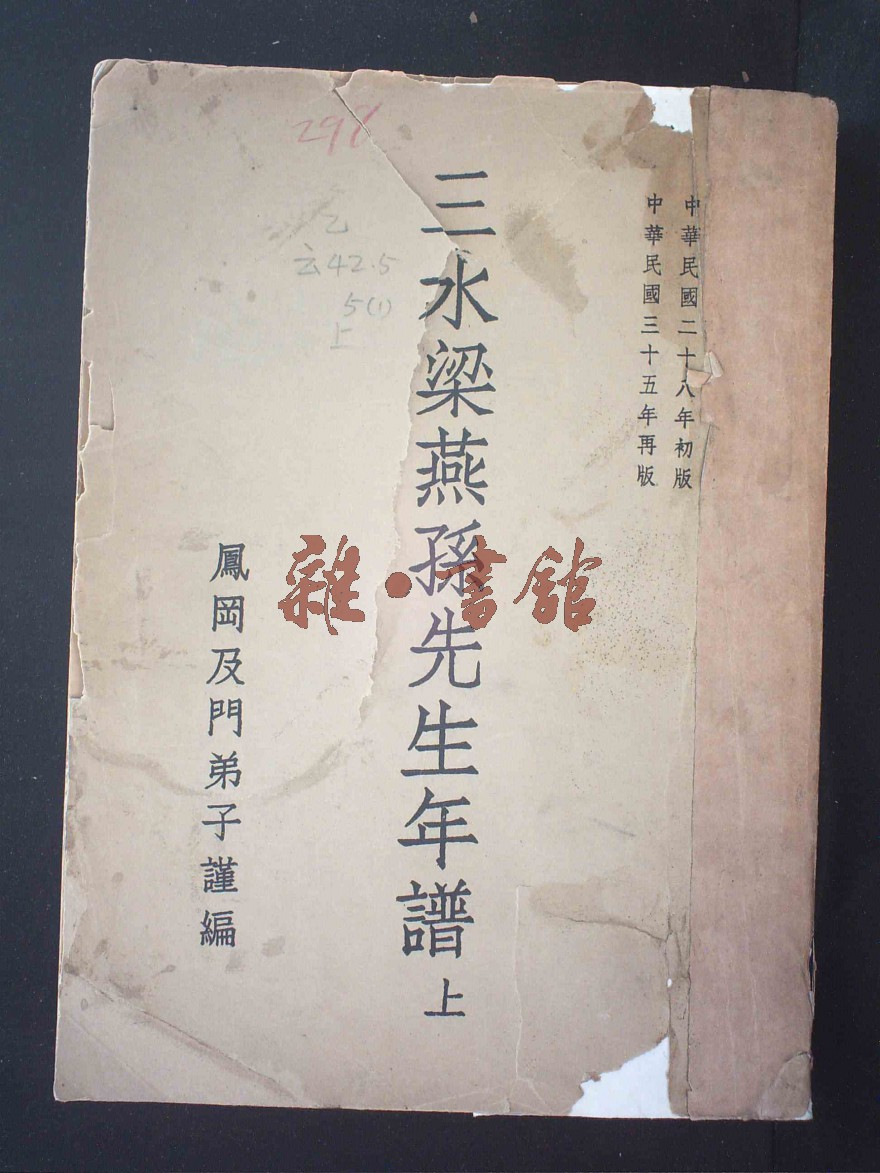 中華民國二十八年初版
中華民國三十五年再版
三水梁燕孫先生年譜 上
鳳岡及門弟子謹編
雜·書館
乙
42.5
5(1)
上